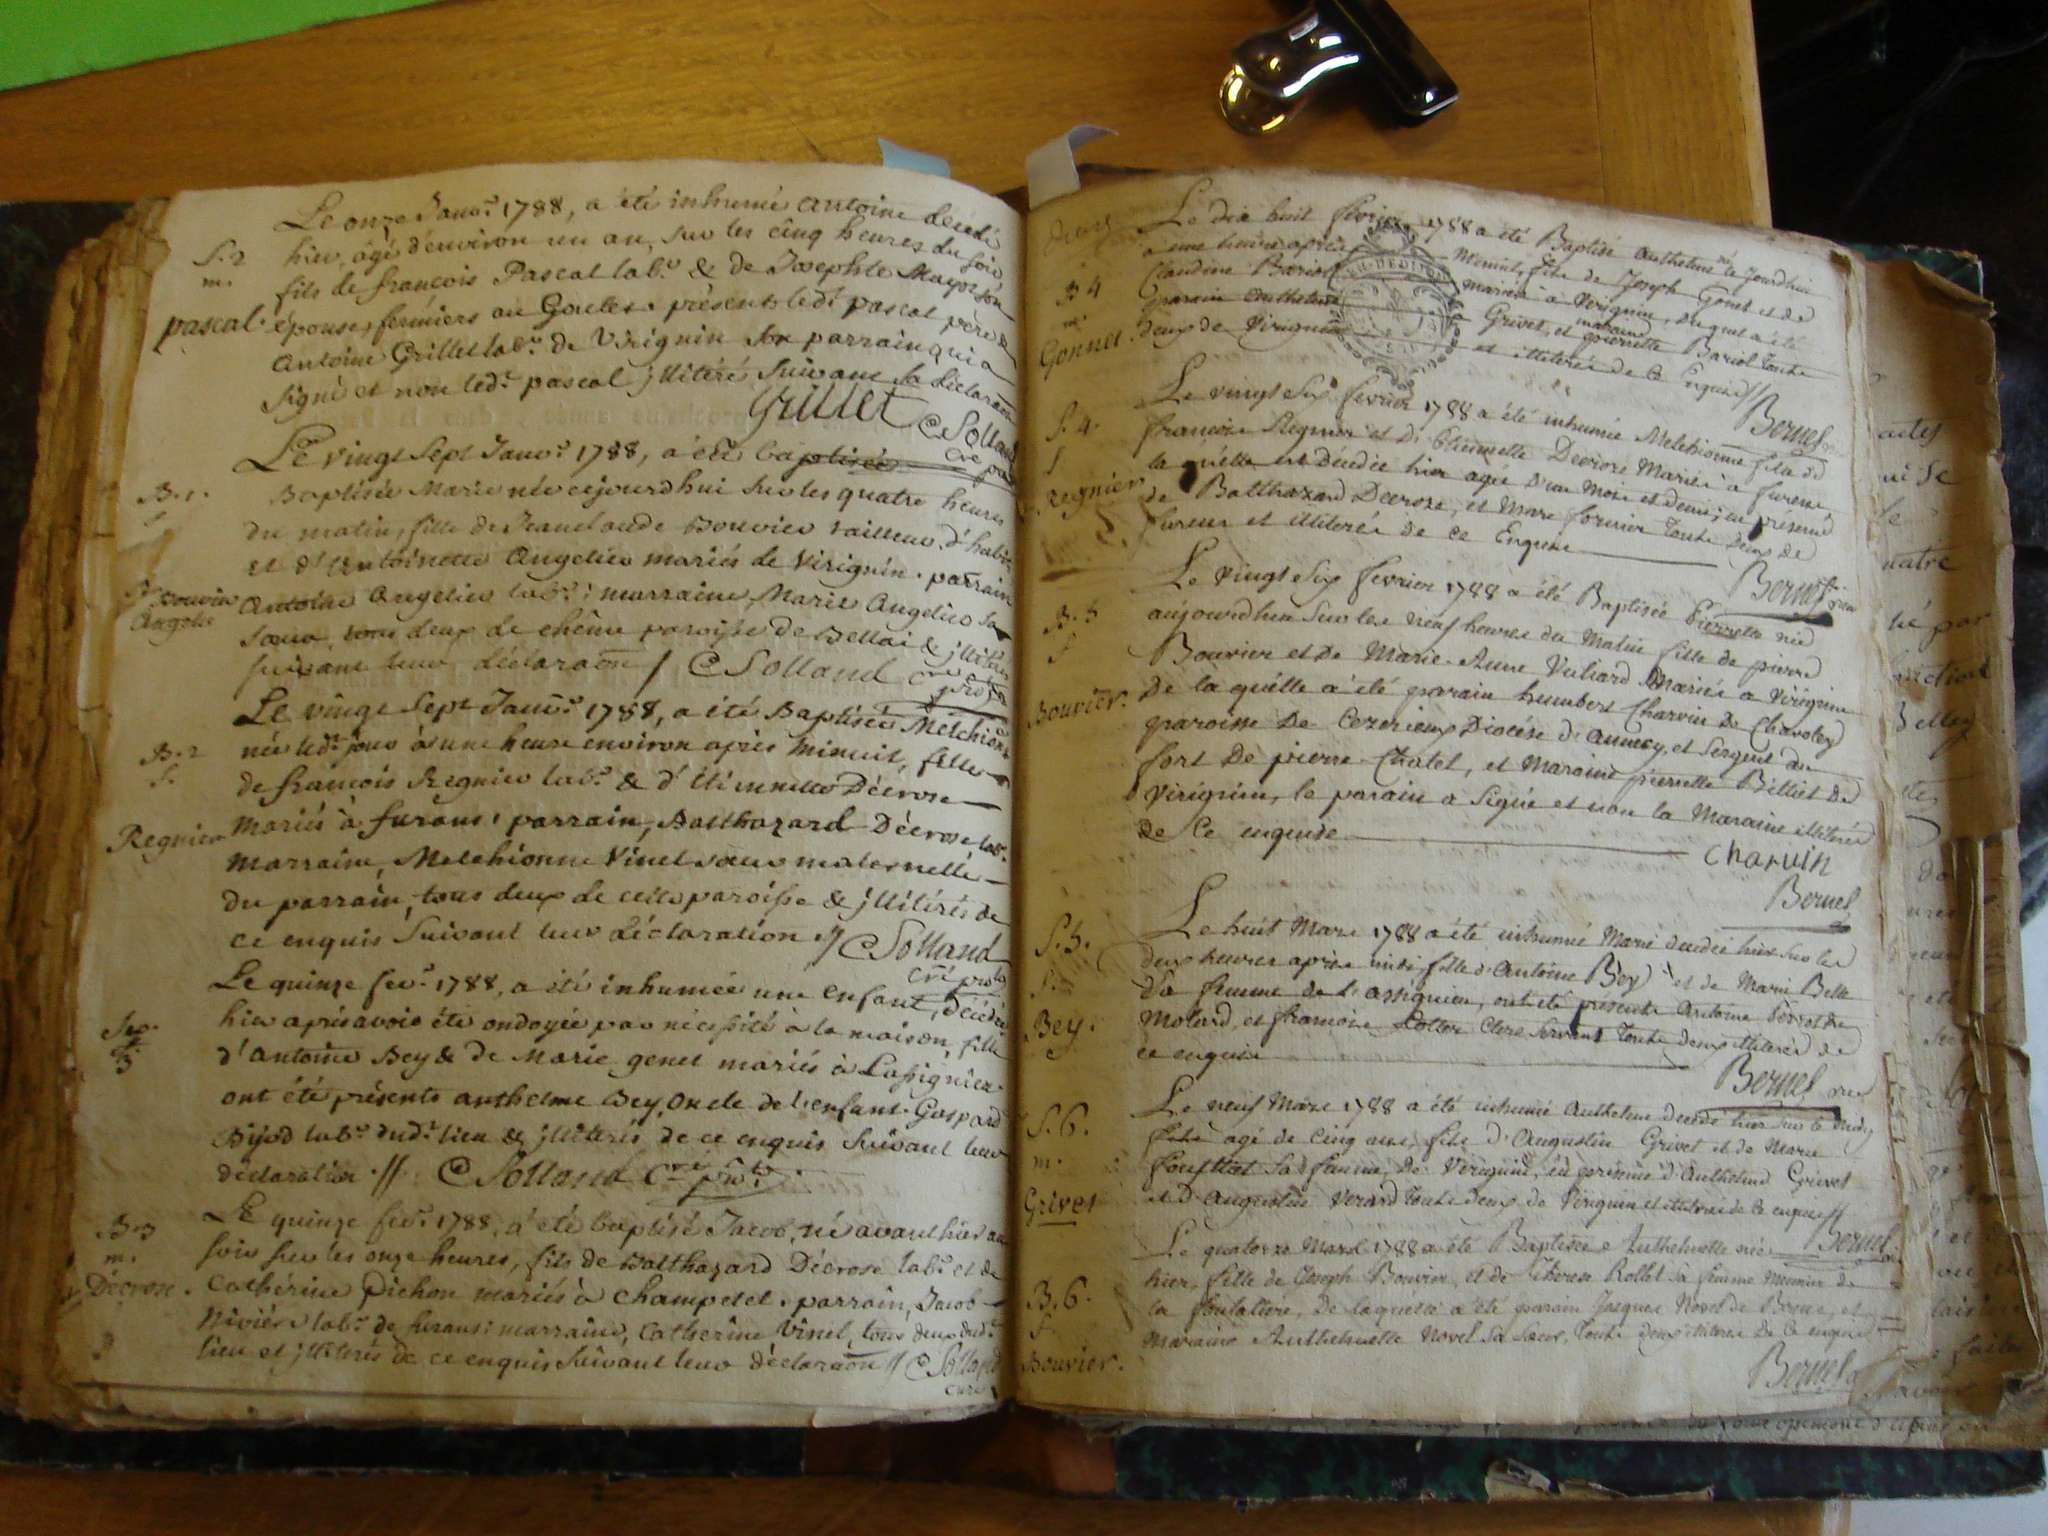 Le onze Janv.r 1788, a été inhumé antoine décédé
hier, âgé d'environ un an, sur les cinq heures du soir
fils de françois Pascal lab.r & de Josephte Mayot son
épouse, fermiers au Goulet. présents led.t pascal père &
Antoine Grillet lab.r de Virignin son parrain qui a
signé et non led.t pascal jllitéré suivant sa déclaraôn
S. 2
m.
pascal.
Grillet C Solland
Le vingt Sept Janv.r 1788, a été baptisée
Baptisée Marie née cejourdhui sur les quatre heures
du matin, fille de Jeanclaude Bouvier tailleur d'habits
et d'Antoinette Angelier mariés de Virignin. parrain
Antoine Angelier lab.r; marraine, Marie Angelier sa
sœur, tous deux de chêne paroisse de Bellai & jllitérés
suivant leur déclaraôn / C Solland
B. 1.
f
Bouvier
Le vingt Sept Janv.r 1788, a été Baptisée Melchione
née led.t jour à une heure environ après minuit, fille
de françois Regnier lab.r & d'Etiennette Décrose
mariés à furans; parrain, Balthazard Décrose lab.r
marraine, Melchionne Vinet sœur maternelle
du parrain, tous deux de cette paroisse & jllitérés de
ce enquis suivant leur déclaration // C Solland
B. 2
f.
Regnier
Le quinze fev.r 1788, a été inhumée une enfant, décédée
hier après avoir été ondoyée par nécessité à la maison, fille
d'antoine Bey & de Marie genet mariés à Lassignieu.
ont été présents anthelme Bey, oncle de l'enfant. Gaspard
Bijod lab.r dud.t lieu & jllitérés de ce enquis suivant leur
déclaration. // C Solland
Sep.
3
Le quinze fev.r 1788, a été baptisé Jacob, né avant hier au
soir sur les onze heures, fils de Balthazard Décrose lab.r et de
Cathérine Pichon mariés à Champetel. parrain, Jacob
Nivière lab.r de furans; marraine, Catherine Vinet, tous deux dud.t
lieu et jllitérés de ce enquis suivant leur déclaraôn // C Solland
curé
B. 3
m.
Décrose.
Le dix huit fevrier 1788 a été Baptisé Anthelme né le jourdhui
a une heure après Minuit, fils de Joseph Gonet et de
Claudine Bariol mariés à Virignin, duquel a été
parain Anthelme Grivet, et marraine pierrette Bariol touts
deux de Virignin et illiterés de ce Enquis //
B 4
m.
Gonnet.
Bernel
Le vingt Six fevrier 1788 a été inhumée Melchionne fille de
françois Regnier et d'Etiennette Decrose Mariés a furens,
la quelle est décédée hier agée d'un Mois et demi, en présence
de Balthazard Decrose, et Marc fornier touts deux de
furens et illiterés de ce Enquis
S. 4.
f
regnier
Bernel
Le Vingt Six fevrier 1788 a été Baptisée Pierrette née
aujourdhui sur les neuf heures du Matin fille de pierre
Bouvier et de Marie-Anne Vuliard Mariés a Virignin
De la quélle a été parain humbert Charvin de Chavoley
paroisse De Cezerieux Diocése d'annecy, et Sergent au
fort De pierre-Chatel, et Maraine pierrette Billiet De
Virignin, le parain a Signé et non la Maraine illitérée
de Ce enquise
B. 5
f
Bouvier.
Charvin
Bernel
Le huit Mars 1788 a été inhumé Marie decedée hier sur les
deux heures après midi, fille d'Antoine Bey et de Marie Belle
Sa femme de l'assignieu, ont été présents Antoine Perret de
Motard, et françois Lottor Clerc servant touts deux illiterés de
ce enquis
S. 5.
f.
Bey.
Bernel
Le neuf Mars 1788 a été inhumé Anthelme decedé hier sur le midy
agé de Cinq ans, fils d'Augustin Grivet et de Marie
sa femme, De Virignin, en presence d'Anthelme Grivet
et d'Augustin Verard touts deux de Virignin et illiterés de ce enquis //
S. 6.
m.
Grivet
Bernel
Le quatorze Mars 1788 a été Baptisée Anthelmette née
hier, fille de Joseph Bouvier, et de Rollet sa femme Meunier de
la fontatière, De laquelle a été parain Jacques Novel de Berne, et
Maraine Anthelmette Novel sa sœur, touts deux illiteres De ce enquis
B. 6.
f
Bouvier.
Bernel